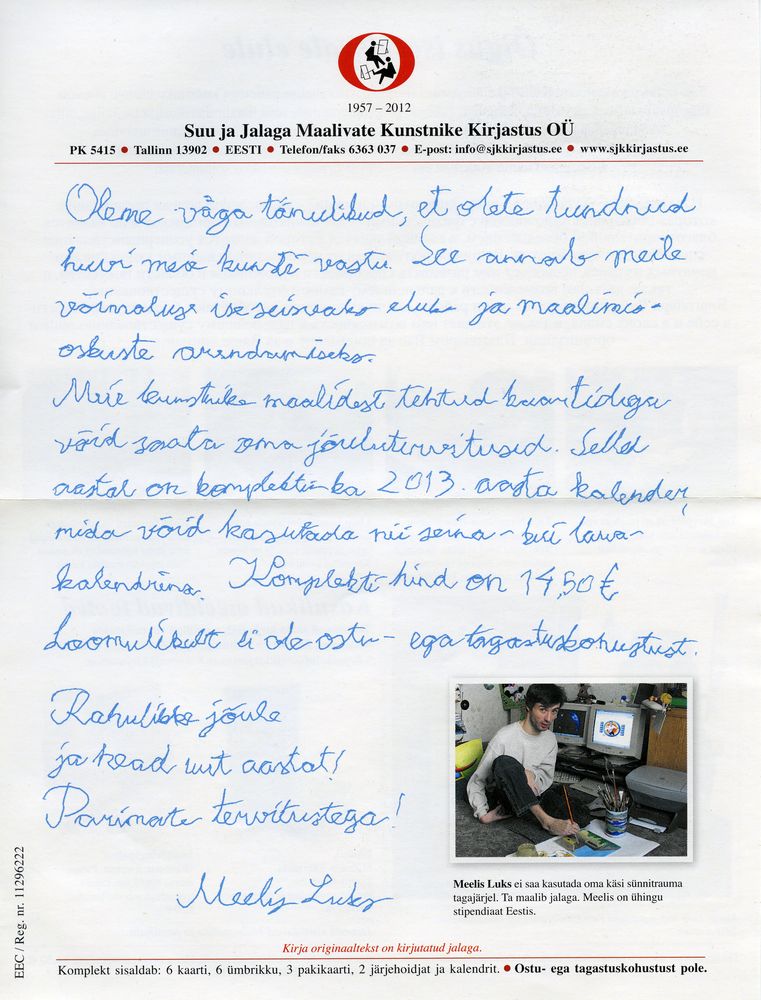 1957 – 2012
Suu ja Jalaga Maalivate Kunstnike Kirjastus OÜ
PK 5415 ● Tallinn 13902 ● EESTI ● Telefon/faks 6363 037 ● E-post: info@sjkkirjastus.ee ● www.sjkkirjastus.ee
Oleme väga tänulikud, et olete tundnud
huvi meie kunsti vastu. See annab meile
võimaluse iseseisvaks eluks ja maalimis-
oskuste arendamiseks.
Meie kunstnike maalidest tehtud kaartidega
võid saata oma jõulutervitused. Sellel
aastal on komplektis ka 2013. aasta kalender,
mida võid kasutada nii seina- kui laua-
kalendrina. Komplekti hind on 14,50 €
Loomulikult ei ole ostu- ega tagastuskohustust.
Rahulikke jõule
ja head uut aastat!
Parimate tervitustega!
Meelis Luks
Meelis Luks ei saa kasutada oma käsi sünnitrauma
tagajärjel. Ta maalib jalaga. Meelis on ühingu
stipendiaat Eestis.
EEC / Reg. nr. 11296222
Kirja originaaltekst on kirjutatud jalaga.
Komplekt sisaldab: 6 kaarti, 6 ümbrikku, 3 pakikaarti, 2 järjehoidjat ja kalendrit. ● Ostu- ega tagastuskohustust pole.